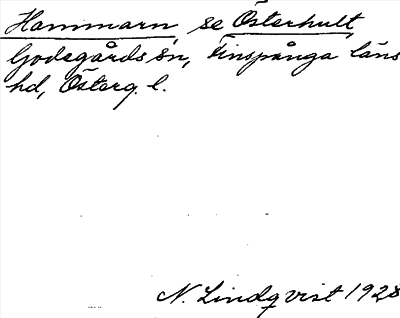 Hammarn, se Österhult,
Godegårds sn, Finspånga läns
hd, Österg. l.
N. Lindqvist 1928